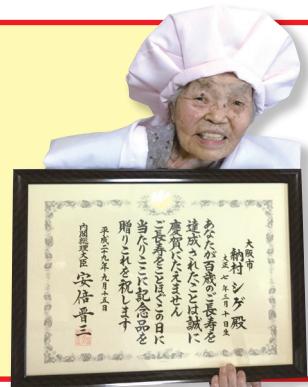 大阪市
納村シゲ殿
大正七年三月十日生
あなたが百歳のご長寿を
達成されたことは誠に
慶賀にたえません
ご長寿をことほぐこの日に
当たりここに記念品を
贈りこれを祝します
平成二十九年九月十五日
内閣総理大臣 安倍晋三